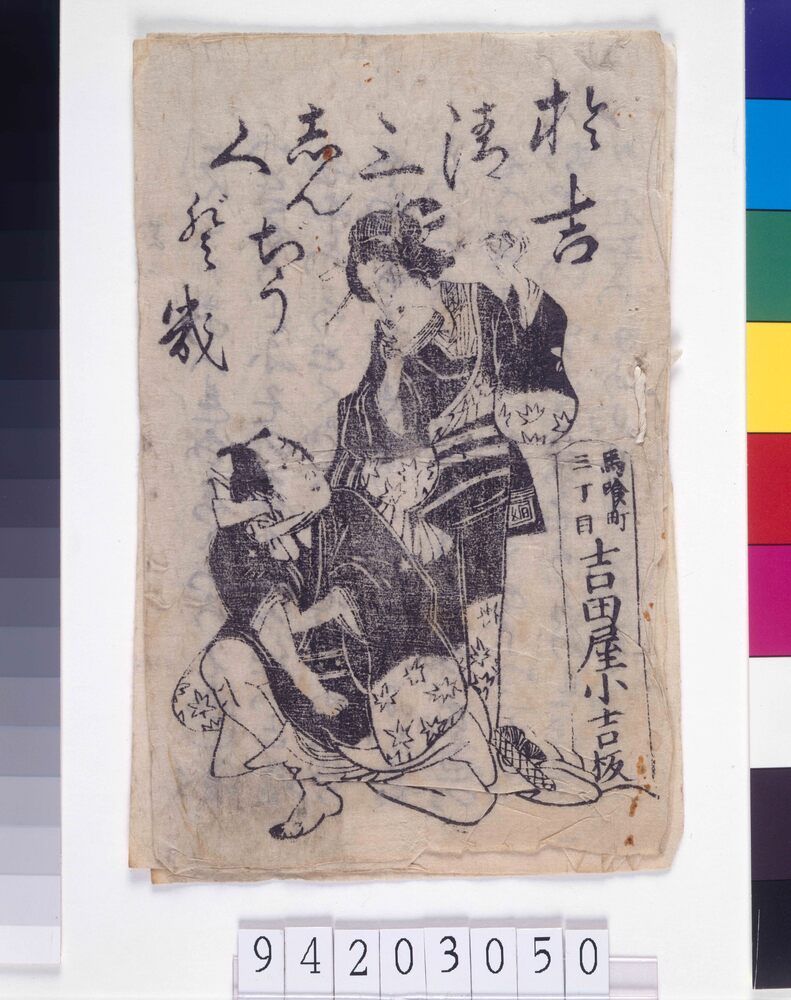 於吉
清
三
志ん
ぢう
く
どき
幾
馬喰町
三丁目
吉田屋小吉板
94203050